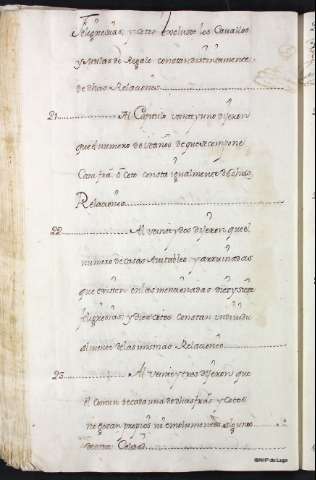 feligresias, y Cotos incluso los Cavallos
y Mulas de Regalo constan distintamente
de dhas Relaciones
21 Al Capitulo veinte y uno dijeron
que el numero de Vezinos de que se compone
Cada fra. o Coto consta igualmente de
Relacion
22 Al veinte y dos dijeron que el
numero de casas avitables y arruinadas
que existen en las mencionadas diez y siete
feligresias, y Cotos constan individu
almente de las mismas Relaciones
23 Al veinte y tres dijeron que
el Comun de cada una de dhas fras. y Cotos
no gozan propios ni emolumentos algunos

©AHP de Lugo